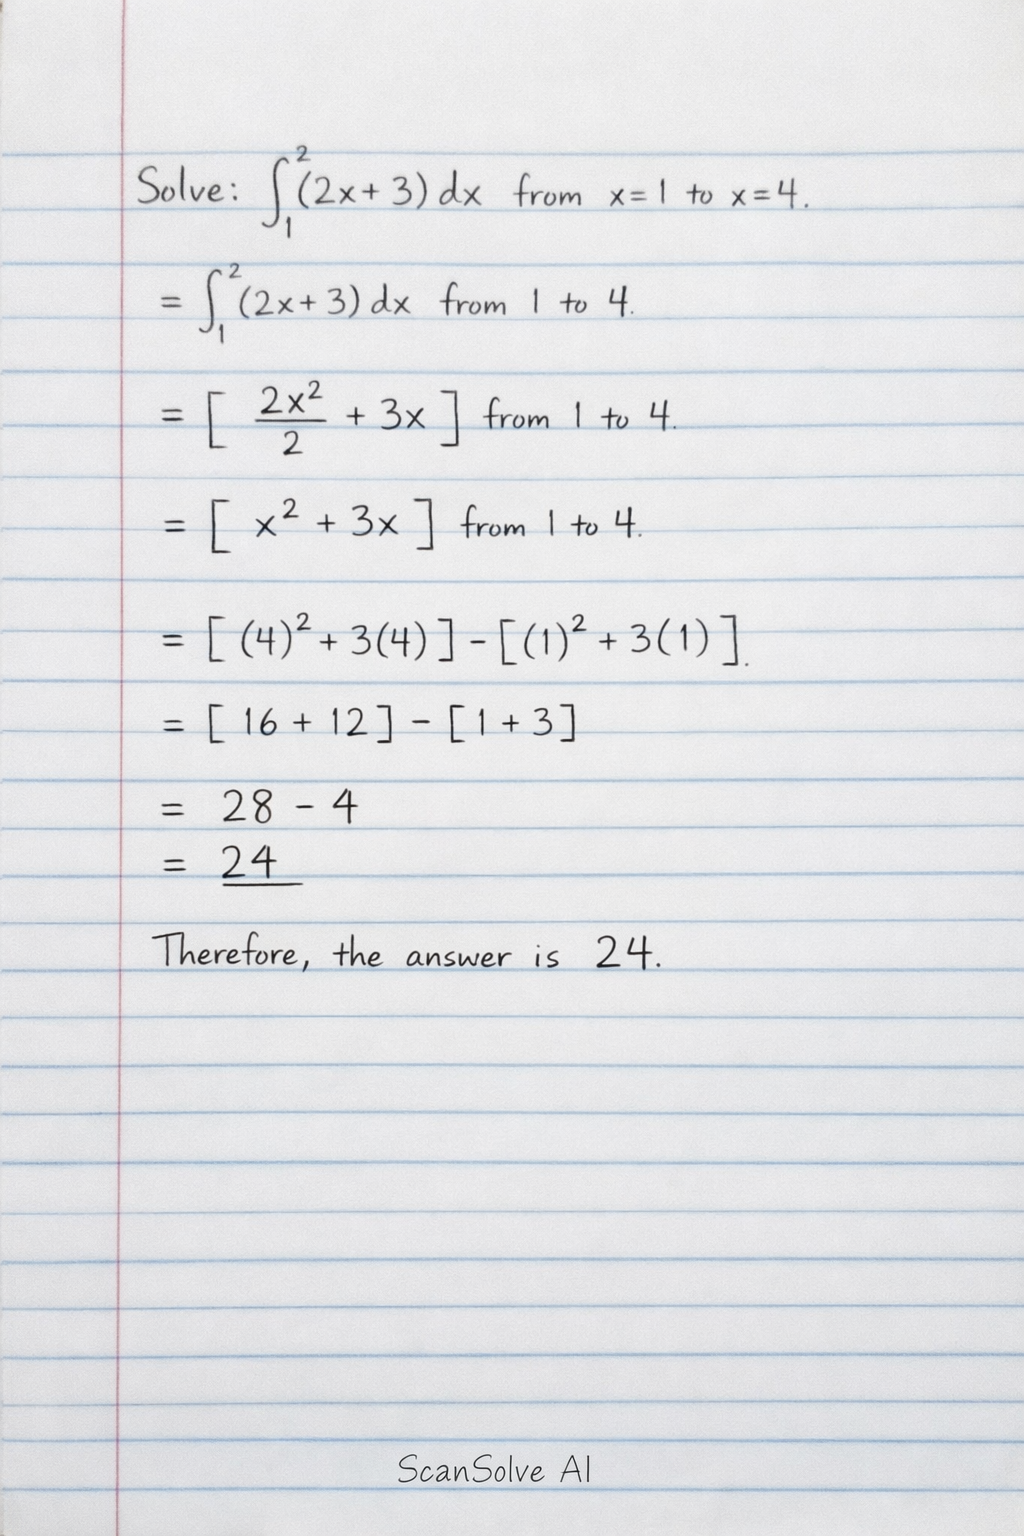 Solve: ∫₁² (2x + 3) dx from x = 1 to x = 4.
= ∫₁² (2x + 3) dx from 1 to 4.
= [ 2x²/2 + 3x ] from 1 to 4.
= [ x² + 3x ] from 1 to 4.
= [ (4)² + 3(4) ] - [ (1)² + 3(1) ].
= [ 16 + 12 ] - [ 1 + 3 ]
= 28 - 4
= 24
Therefore, the answer is 24.
ScanSolve AI